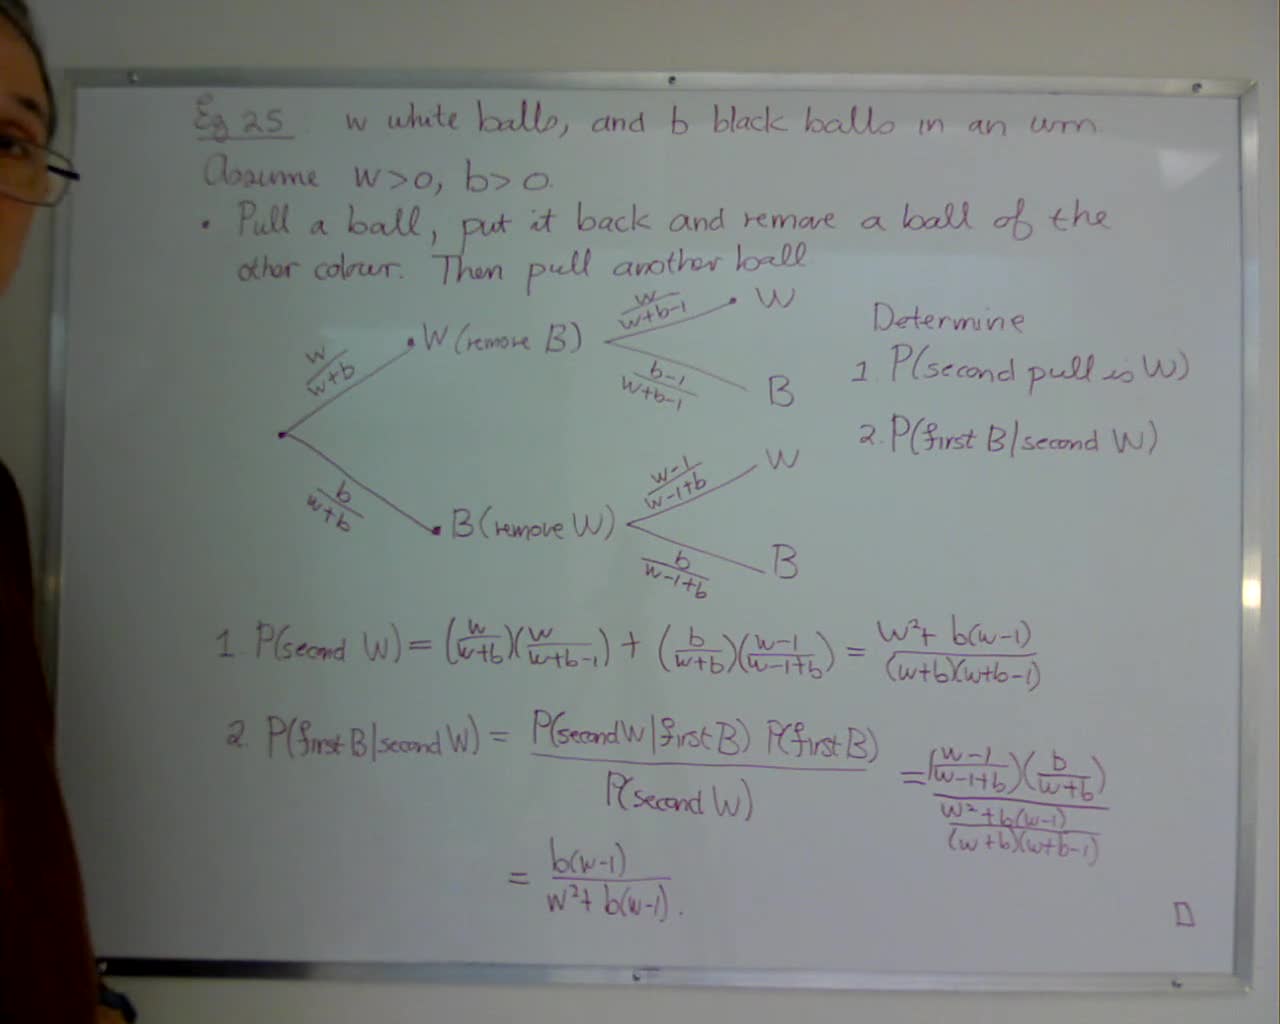 Eg 25 w white balls, and b black balls in an urn.
Assume w>0, b>0.
• Pull a ball, put it back and remove a ball of the
other colour. Then pull another ball
w/(w+b)
W (remove B)
w/(w+b-1)
W
(b-1)/(w+b-1)
B
b/(w+b)
B (remove W)
(w-1)/(w-1+b)
W
b/(w-1+b)
B
Determine
1. P(second pull is W)
2. P(first B|second W)
1. P(second W) = (w/(w+b))(w/(w+b-1)) + (b/(w+b))((w-1)/(w-1+b)) = (w²+ b(w-1))/((w+b)(w+b-1))
2. P(first B|second W) = P(second W|first B) P(first B) / P(second W) = ((w-1)/(w-1+b))(b/(w+b)) / ((w²+b(w-1))/((w+b)(w+b-1)))
= b(w-1)/(w²+ b(w-1)).